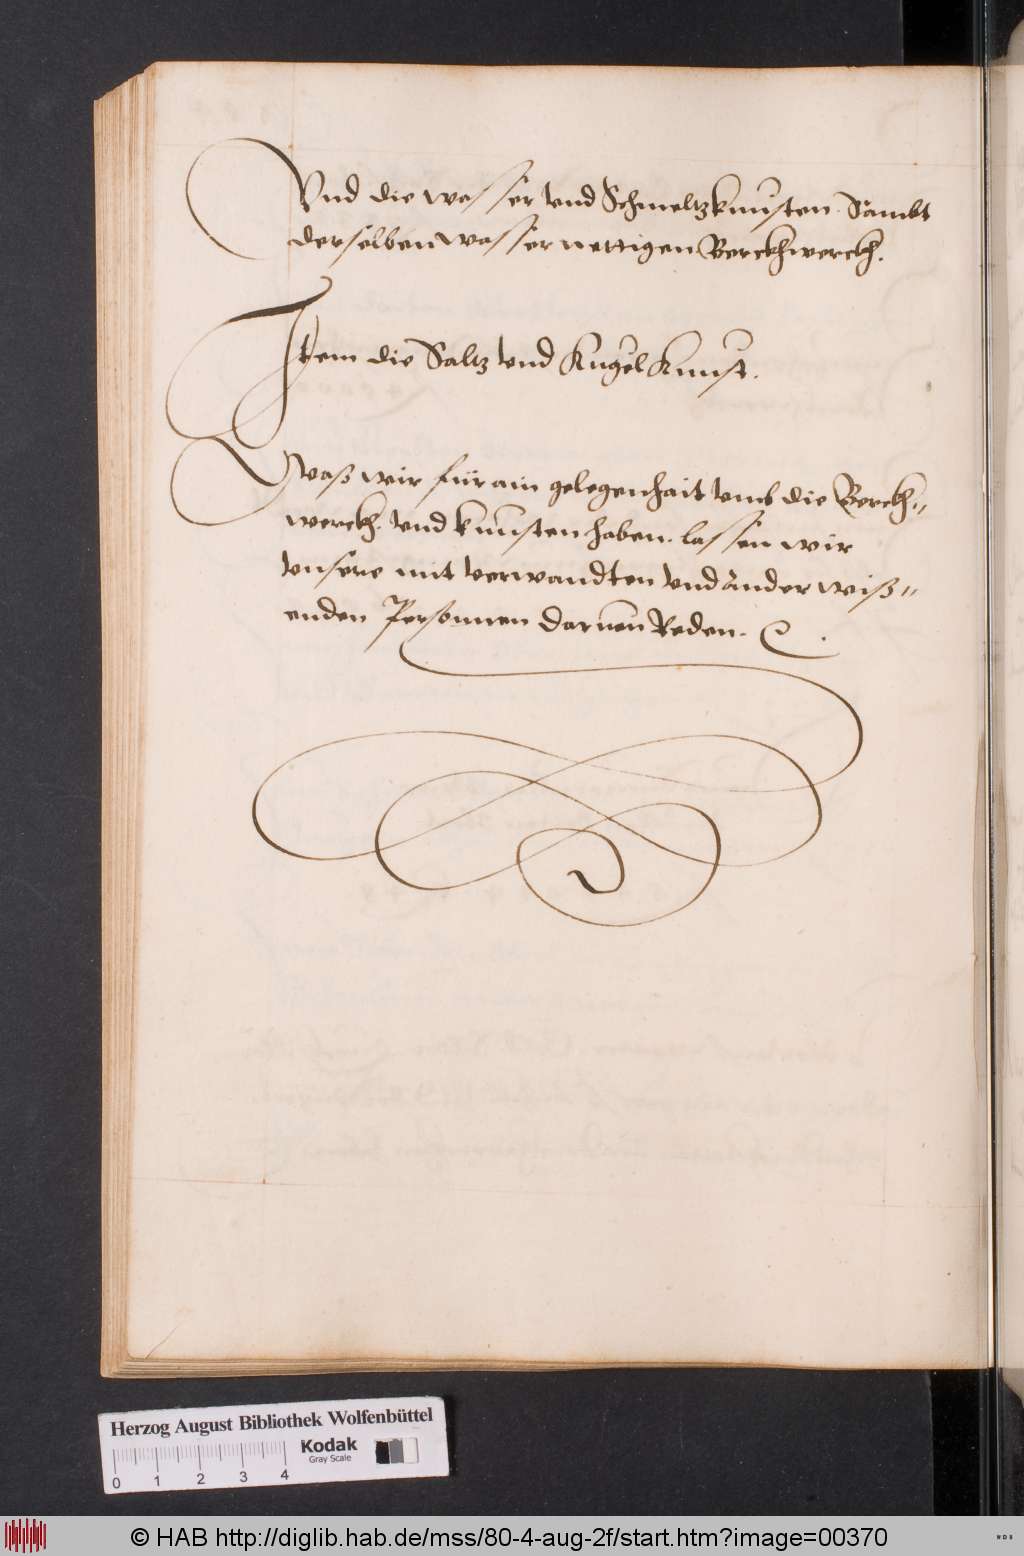 Vnd die wasser vnd Schmeltzkunsten Sambt
derselben wasser nottigen Berckhwerckh.
Item die Saltz vnd Kugel Kunst.
Waß wir für ain gelegenhait vmb die Berckh„
werckh. vnd kunsten haben. lassen wir
vnsere mit verwandten vnd Ander wiß„
enden Personnen daruon Reden.
Herzog August Bibliothek Wolfenbüttel
Kodak
Gray Scale
0 1 2 3 4
© HAB http://diglib.hab.de/mss/80-4-aug-2f/start.htm?image=00370